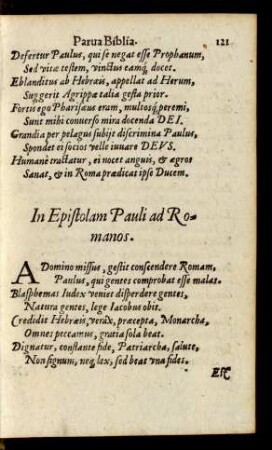 Parua Biblia. 121
Defertur Paulus, qui se negat esse Prophanum,
Sed vitæ testem, vinctus eamq́; docet.
Eblanditus ab Hebræis, appellat ad Herum,
Suggerit Agrippæ talia gesta prior.
Fortis ego Pharisæus eram, multosq́; peremi,
Sunt mihi converso mira docenda DEI.
Grandia per pelagus subijt discrimina Paulus,
Spondet ei socios velle iuvare DEVS.
Humanè tractatur, ei nocet anguis, & ægros
Sanat, & in Roma prædicat ipse Ducem.
In Epistolam Pauli ad Ro-
manos.
A Domino missus, gestit conscendere Romam,
Paulus, qui gentes comprobat esse malas.
Blasphemas Iudex veniet disperdere gentes,
Natura gentes, lege Iacobus obit.
Credidit Hebræis, veráx, præcepta, Monarcha,
Omnes peccamus, gratia sola beat.
Dignatur, constante fide, Patriarcha, salute,
Non signum, neq́; lex, sed beat vna fides.